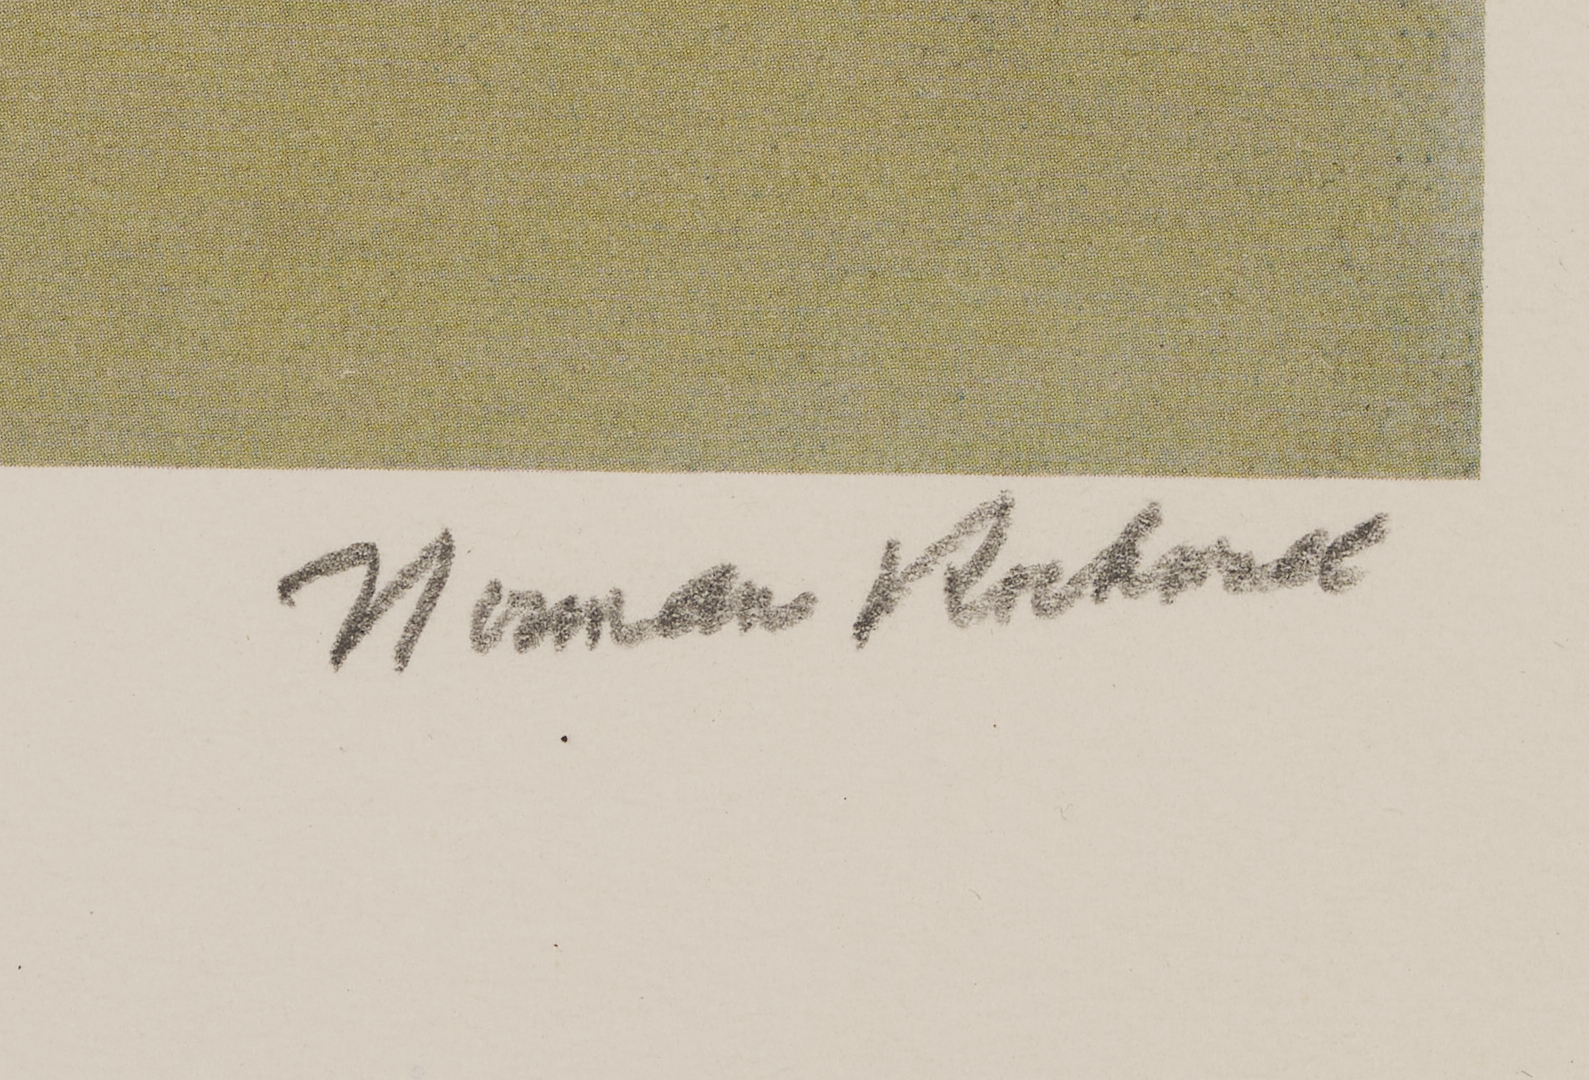 Norman Rockwell